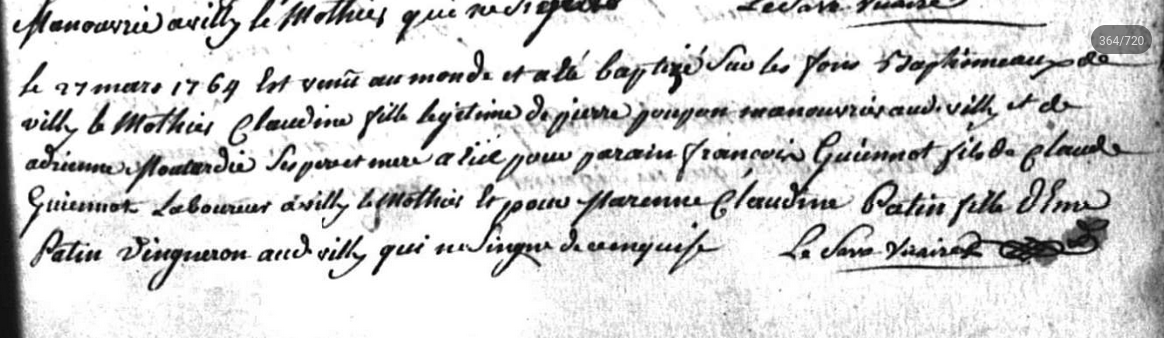 Manouvrié a villy le Mothier qui ne signe Le Save vicaire
364/720
le 27 mars 1764 Est venü au monde et a été baptizé Sur les fons Baptismeaux de
villy le Mothier Claudine fille legitime de pierre poupon manouvrier aud. villy et de
adrienne Moutardié Ses pere et mere a eüe pour parain françois Guiennot fils de Claude
Guiennot Laboureur à villy le Mothier Et pour Marenne Claudine Patin fille D'Eme
Patin Vingneron aud villy qui ne Singne de ce enquise Le Save vicaire